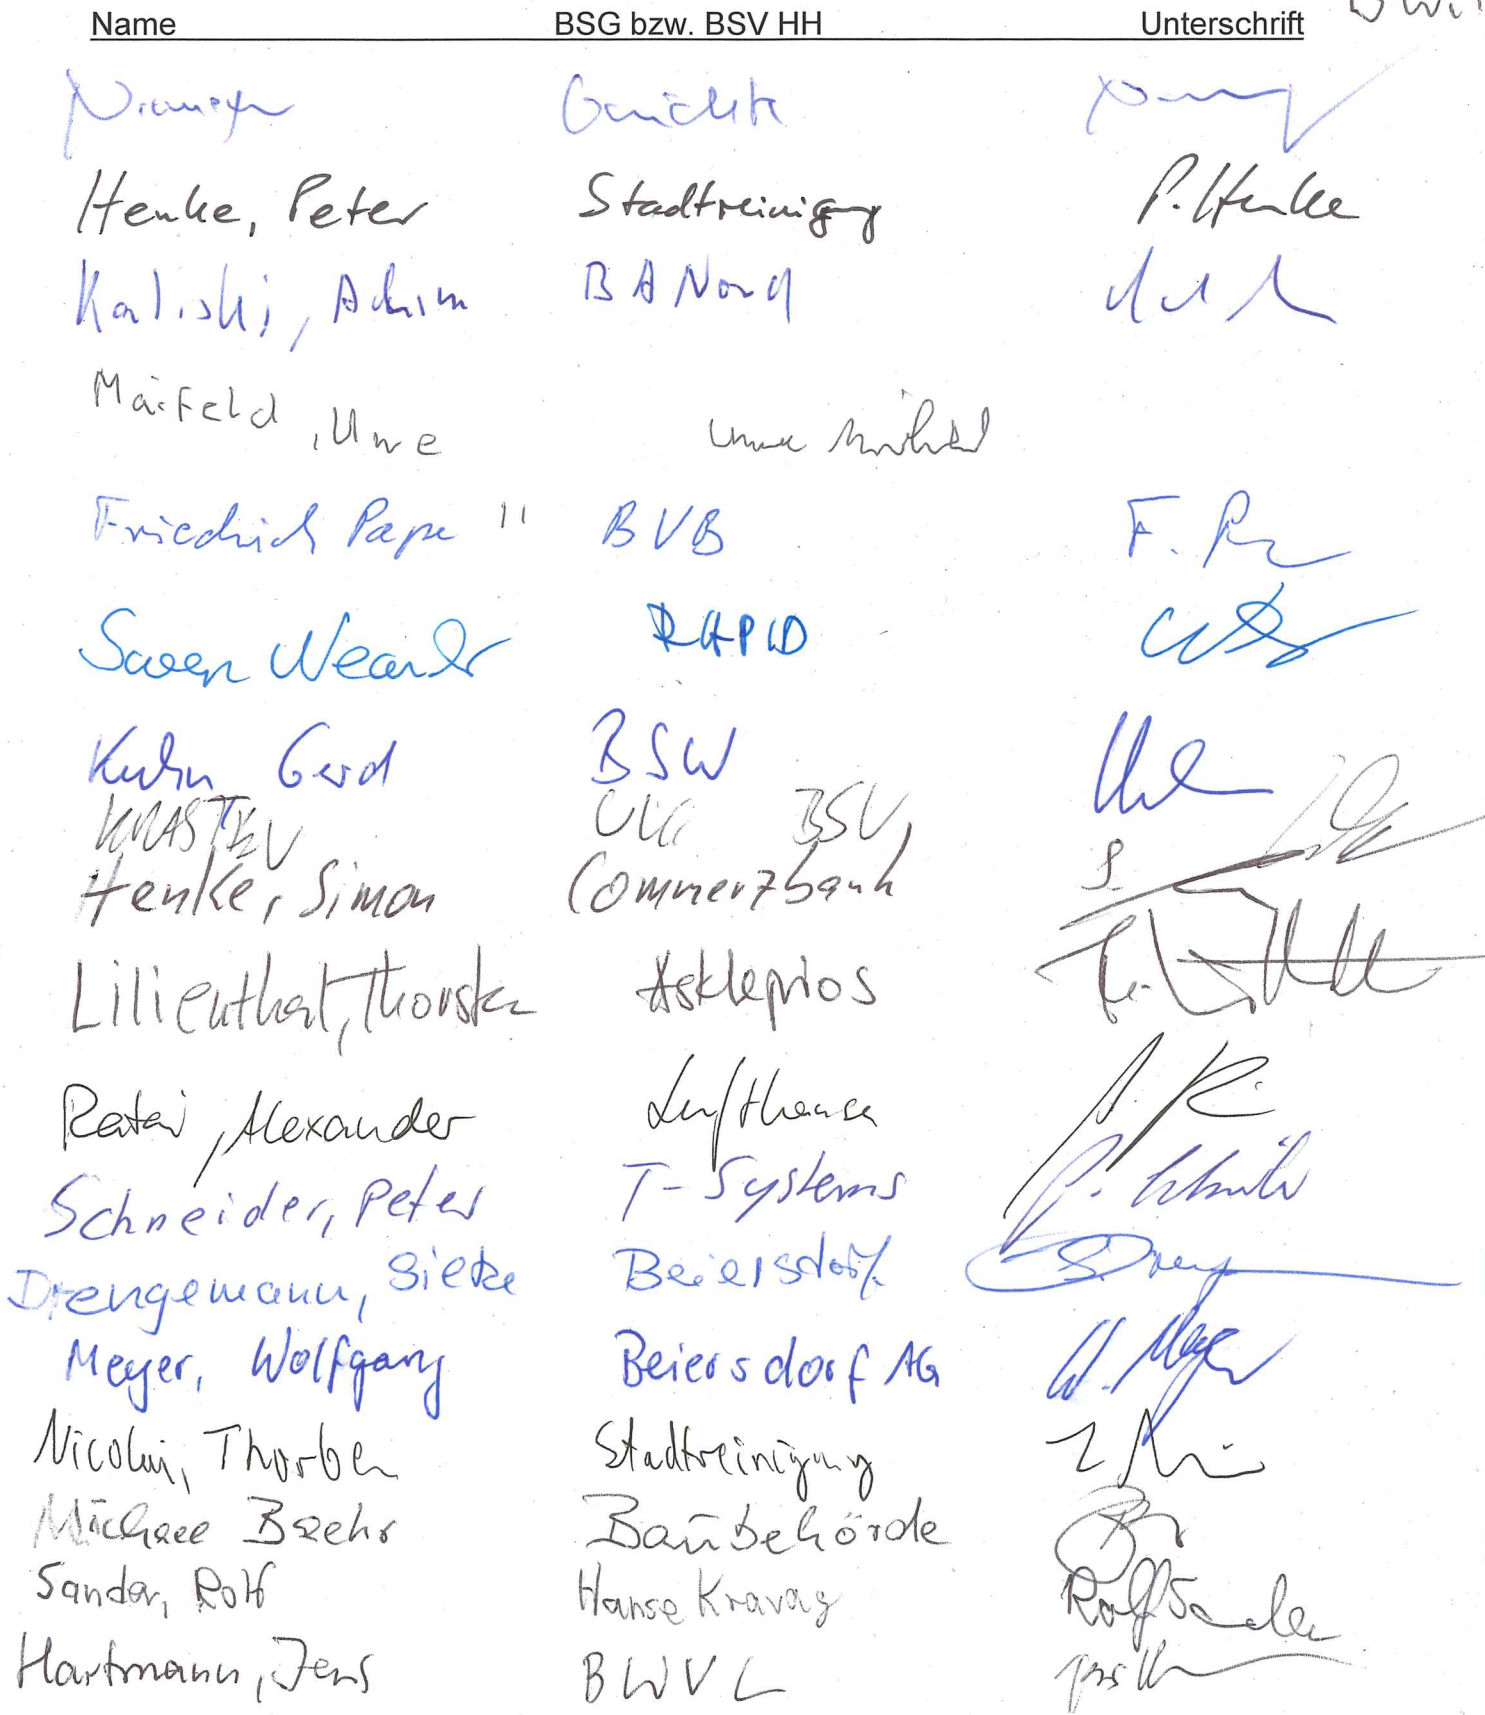 Name BSG bzw. BSV HH Unterschrift
Niemeyer Gerichte
Henke, Peter Stadtreinigung P. Henke
Kaliski, Achim BA Nord
Maifeld, Uwe Uwe Maifeld
Friedrich Pape " BVB F. Pape
Soeren RAPID
Kuhn Gerd BSW
KRASTEV BSV
Henke, Simon Commerzbank S.
Lilienthal, Thorsten Asklepios
Ratai, Alexander Lufthansa A. R
Schneider, Peter T-Systems P. Schneider
Drengemann, Silke Beiersdorf S. Dreng
Meyer, Wolfgang Beiersdorf AG W. Meyer
Nicolai, Thorben Stadtreinigung
Michael Baehr Baubehörde
Sander, Rolf Hanse Kravag Rolf Sander
Hartmann, Jens BWVL